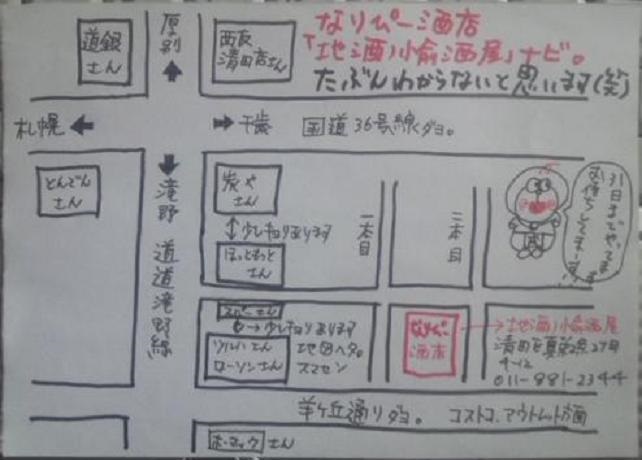 なりぴー酒店
「地酒小愉酒屋」ナビ。
たぶんわからないと思います(笑)
道銀
さん
厚別
西友
清田店さん
札幌
千歳
国道36号線ダヨ。
とんでん
さん
滝野 道道滝野線
炭や
さん
少し手前あります
ほっともっと
さん
一本目
二本目
31日までやってます
お待ちしてまーす!
さん
少し手前あります
さん
ローソンさん
地図ヘタ。
スマセン
なりぴー
酒店
地酒小愉酒屋
清田区真栄2条2丁目
4-12
011-881-2344
羊ケ丘通りダヨ。
コストコ、アウトレット方面
ホーマックさん